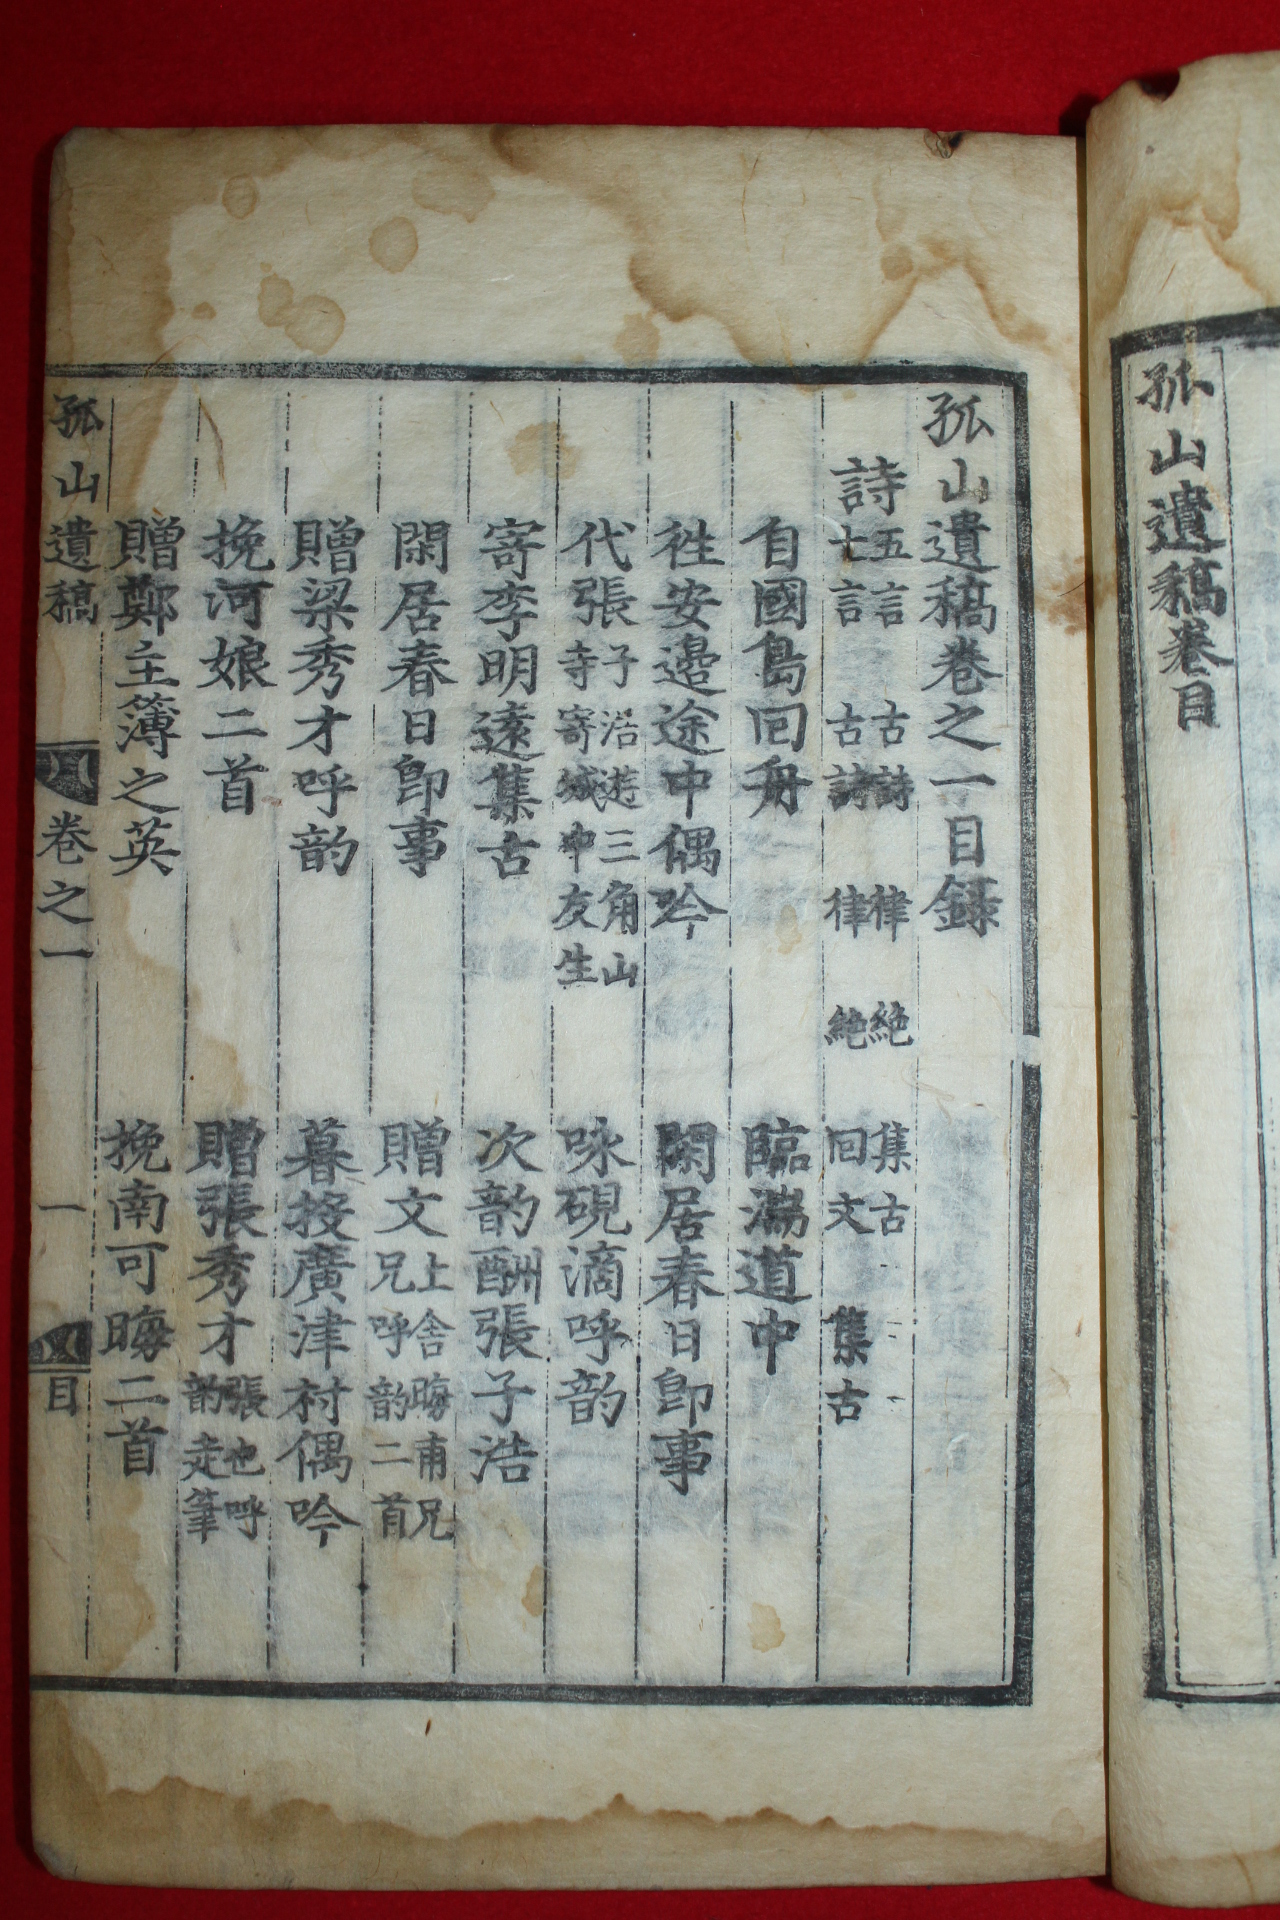 孤山遺稿卷目
孤山遺稿卷之一目錄
詩 五言 古詩 律 絶 集古
七言 古詩 律 絶 回文 集古
自國島回舟 臨湍道中
徃安邉途中偶吟 閑居春日即事
代張子浩遊三角山
寺寄城中友生 咏硯滴呼韵
寄李明遠集古 次韵酬張子浩
閑居春日即事 贈文上舎晦甫兄
兄呼韵二首
贈梁秀才呼韵 暮投廣津村偶吟
挽河娘二首 贈張秀才張也呼
韵走筆
贈鄭主簿之英 挽南可晦二首
孤山遺稿 卷之一 一 目